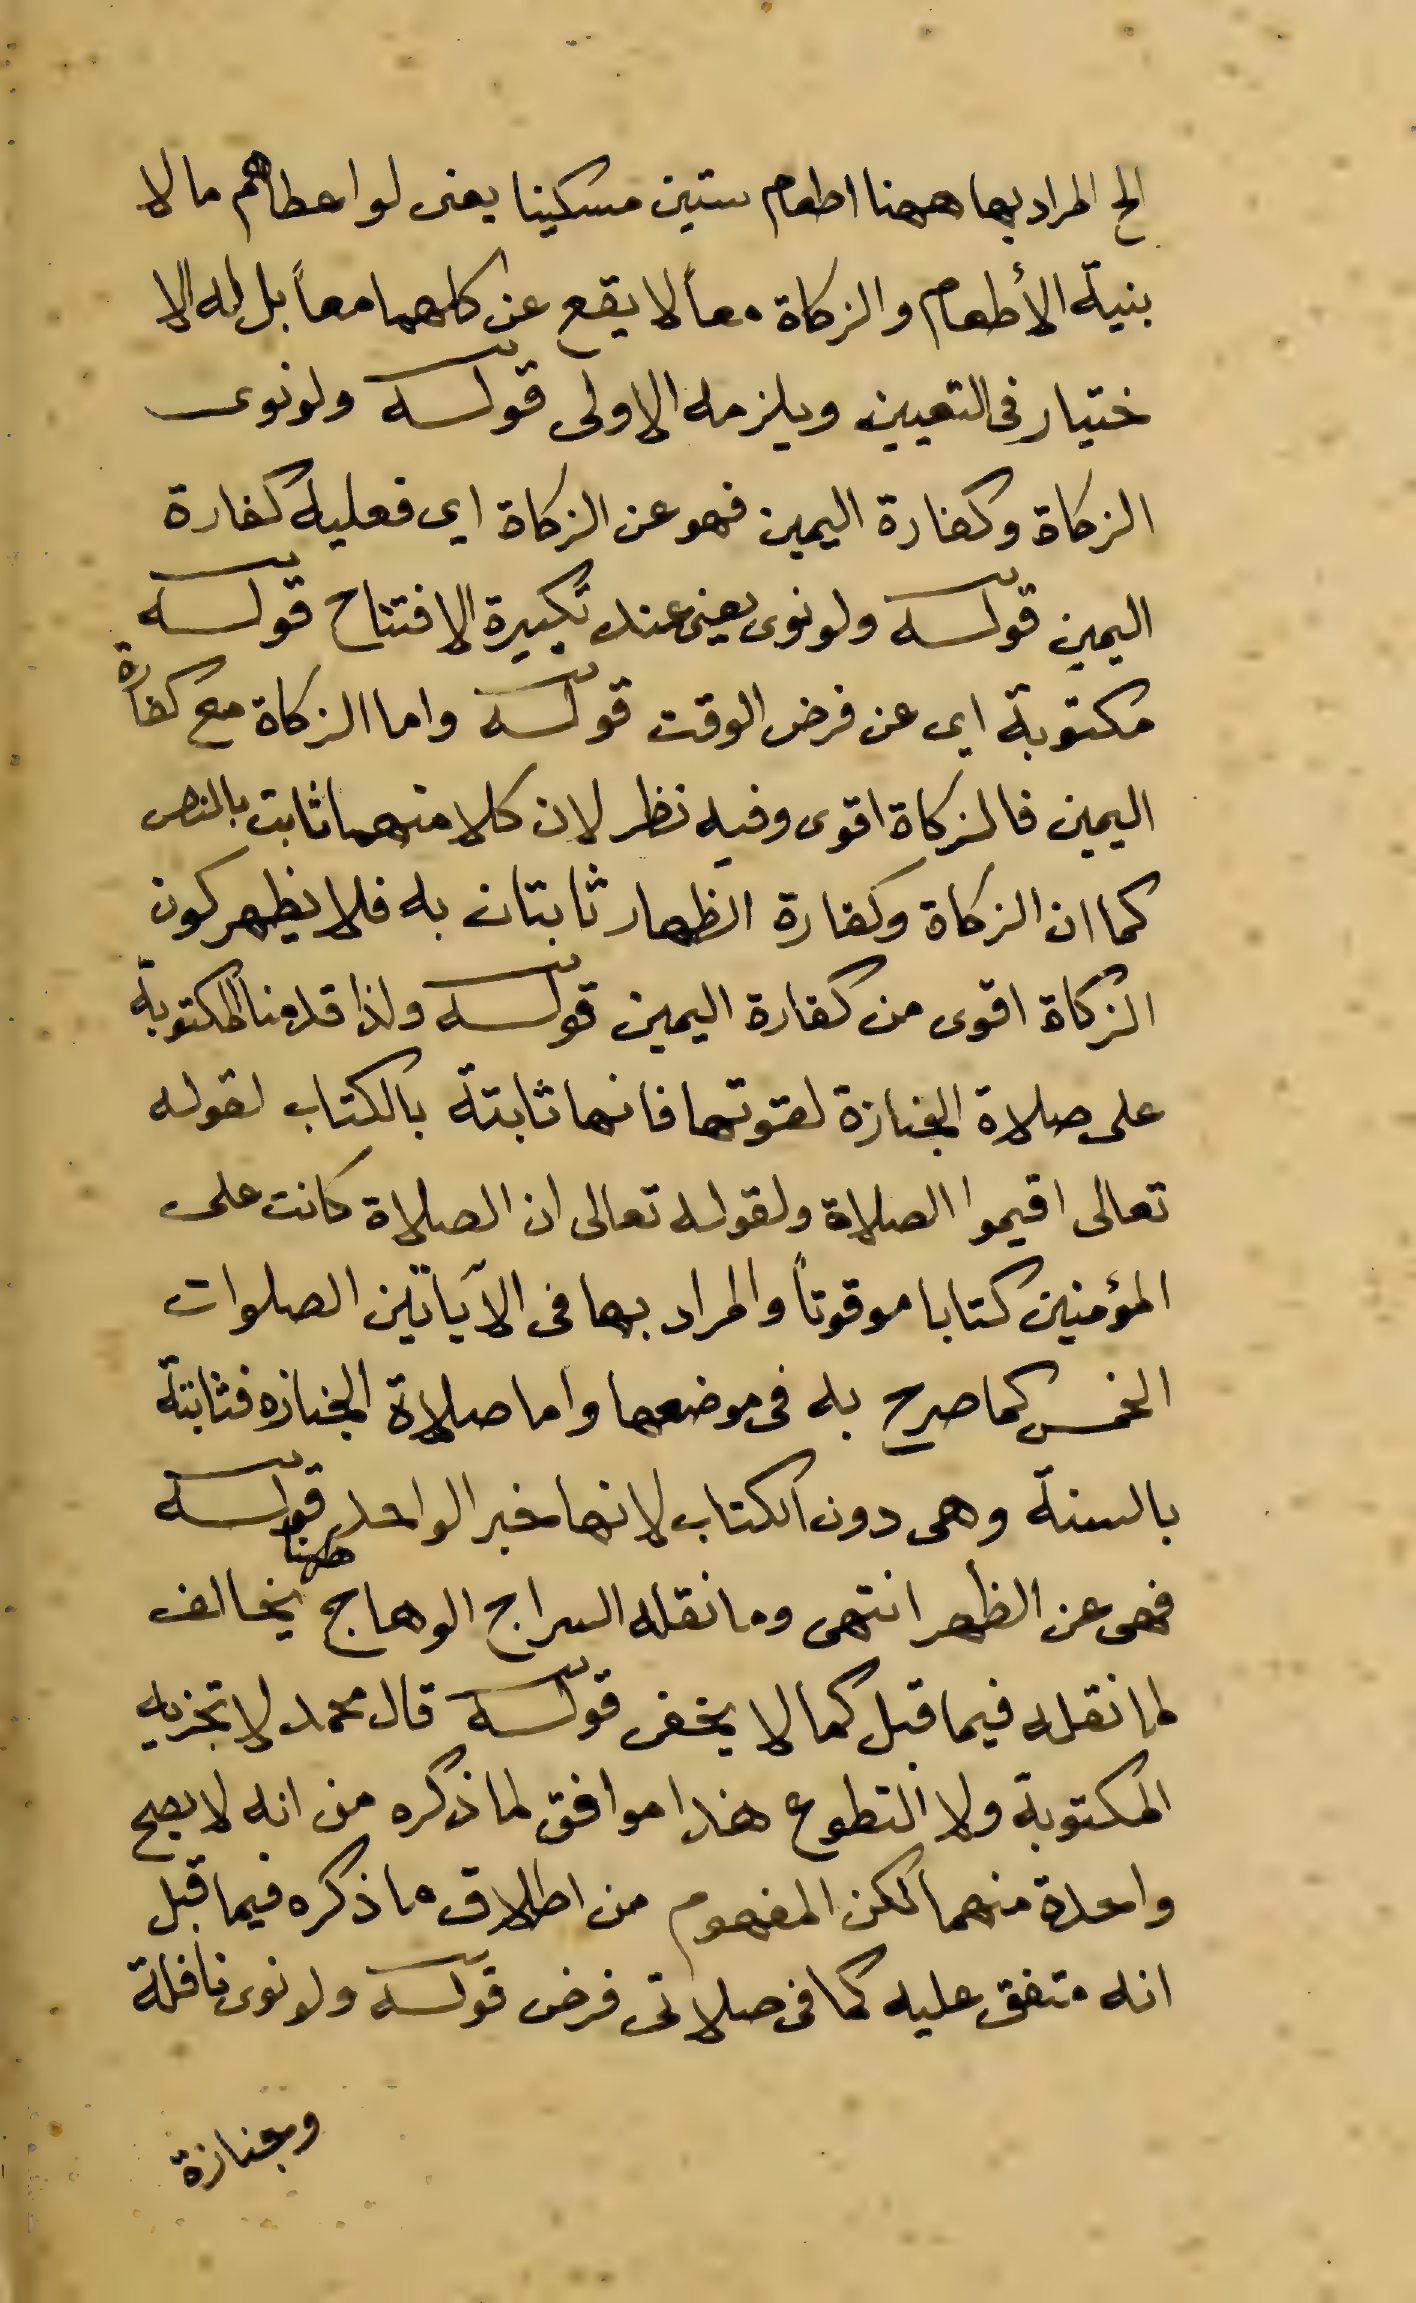 الخ المراد بها ههنا اطعام ستين مسكينا يعنى لو اعطاهم مالا
بنية الأطعام والزكاة معاً لا يقع عن كلهما معاً بل له الا
ختيار فى التعيين ويلزمه الاولى قوله ولو نوى
الزكاة وكفارة اليمين فهو عن الزكاة اى فعليه كفارة
اليمين قوله ولو نوى يعنى عند تكبيرة الافتتاح قوله
مكتوبة اى عن فرض الوقت قوله واما الزكاة مع كفارة
اليمين فالزكاة اقوى وفيه نظر لان كلا منهما ثابت بالنص
كما ان الزكاة وكفارة الظهار ثابتان به فلا يظهر كون
الزكاة اقوى من كفارة اليمين قوله ولذا قدمنا المكتوبة
على صلاة الجنازة لقوتها فانها ثابتة بالكتاب لقوله
تعالى اقيموا الصلاة ولقوله تعالى ان الصلاة كانت على
المؤمنين كتابا موقوتاً والمراد بها فى الآياتين الصلوات
الخمس كما صرح به فى موضعها واما صلاة الجنازه فثابتة
بالسنة وهى دون الكتاب لانها خبر الواحد قوله
فهى عن الظهر انتهى وما نقله السراج الوهاج ههنا يخالف
لما نقله فيما قبل كما لا يخفى قوله قال محمد لا تجزيه
المكتوبة ولا التطوع هذا موافق لما ذكره من انه لا يصح
واحدة منهما لكن المفهوم من اطلاق ما ذكره فيما قبل
انه متفق عليه كما فى صلاتى فرض قوله ولو نوى نافلة
وجنازة